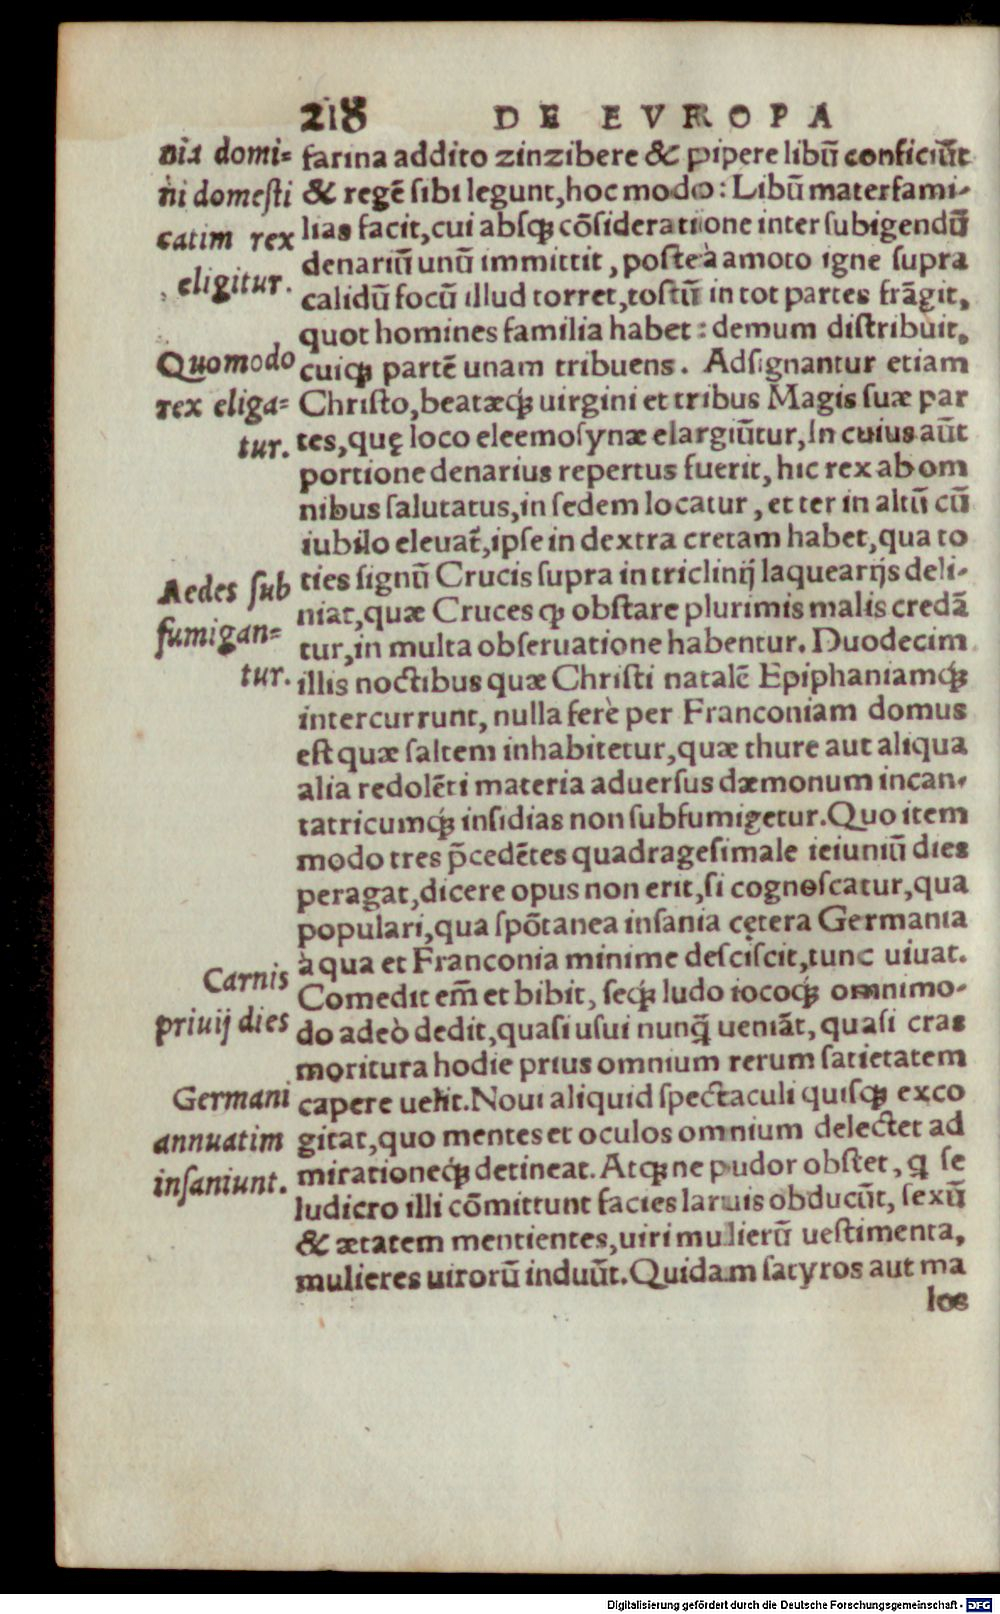 218 DE EVROPA
nia domi=
ni domesti
catim rex
eligitur.
Quomodo
rex eliga=
tur.
Aedes sub
fumigan=
tur.
Carnis
priuij dies
Germani
annuatim
insaniunt.
farina addito zinzibere & pipere libū conficiūt
& regē sibi legunt, hoc modo: Libū materfami-
lias facit, cui absq; cōsideratione inter subigendū
denariū unū immittit, posteà amoto igne supra
calidū focū illud torret, tostū in tot partes frāgit,
quot homines familia habet: demum distribuit,
cuiq; partē unam tribuens. Adsignantur etiam
Christo, beatæq́; uirgini et tribus Magis suæ par
tes, quę loco eleemosynæ elargiūtur, In cuius aūt
portione denarius repertus fuerit, hic rex ab om
nibus salutatus, in sedem locatur, et ter in altū cū
iubilo eleuat̃, ipse in dextra cretam habet, qua to
ties signū Crucis supra in triclinij laquearijs deli-
niat, quæ Cruces ꝙ obstare plurimis malis credā
tur, in multa obseruatione habentur. Duodecim
illis noctibus quæ Christi natalē Epiphaniamq́;
intercurrunt, nulla ferè per Franconiam domus
est quæ saltem inhabitetur, quæ thure aut aliqua
alia redolēti materia aduersus dæmonum incan-
tatricumq́; insidias non subfumigetur. Quo item
modo tres p̄cedētes quadragesimale ieiuniū dies
peragat, dicere opus non erit, si cognoscatur, qua
populari, qua spōtanea insania cętera Germania
à qua et Franconia minime desciscit, tunc uiuat.
Comedit em̄ et bibit, seq́; ludo iocoq́; omnimo-
do adeò dedit, quasi usui nunq̄ ueniāt, quasi cras
moritura hodie prius omnium rerum satietatem
capere uelit. Noui aliquid spectaculi quisq; exco
gitat, quo mentes et oculos omnium delectet ad
mirationeq́; detineat. Atq; ne pudor obstet, q̄ se
ludicro illi cōmittunt facies laruis obducūt, sexū
& ætatem mentientes, uiri mulierū uestimenta,
mulieres uirorū induūt. Quidam satyros aut ma
los
Digitalisierung gefördert durch die Deutsche Forschungsgemeinschaft - DFG